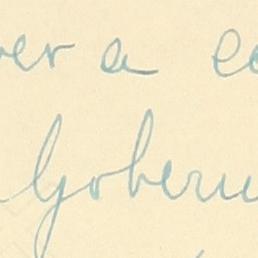 ver a e
Gobern